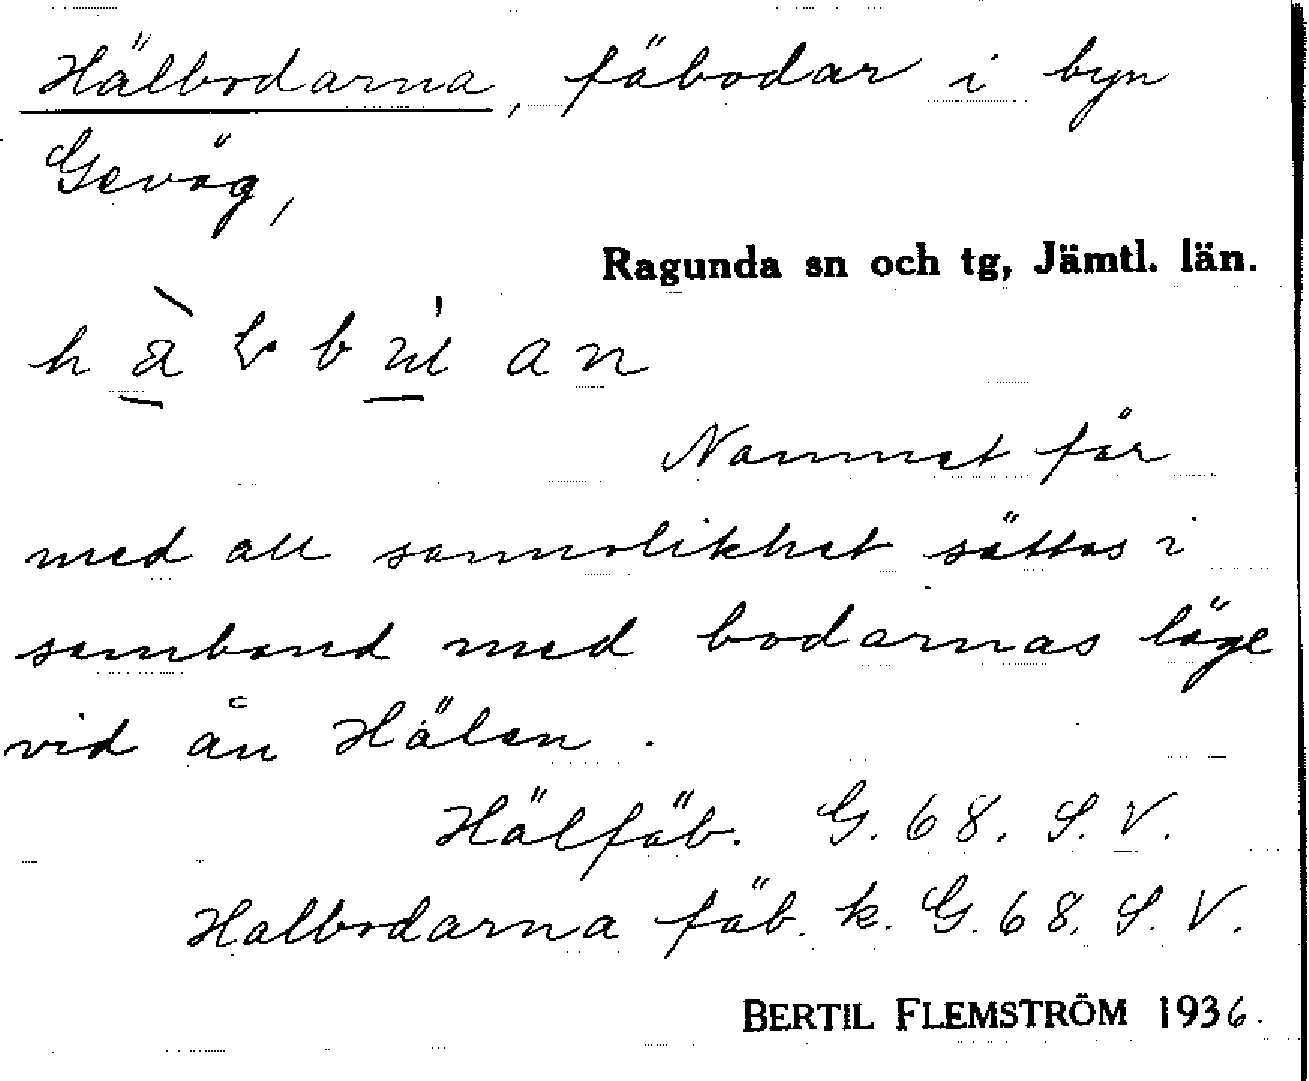 Hälbodarna, fäbodar i byn
Geväg,
Ragunda sn och tg, Jämtl. län.
Namnet får
med all sannolikhet sättas i
samband med bodarnas läge
vid ån Hälen.
Hälfäb. G. 68. S. V.
Halbodarna fäb. k. G. 68. S. V.
BERTIL FLEMSTRÖM 1936.